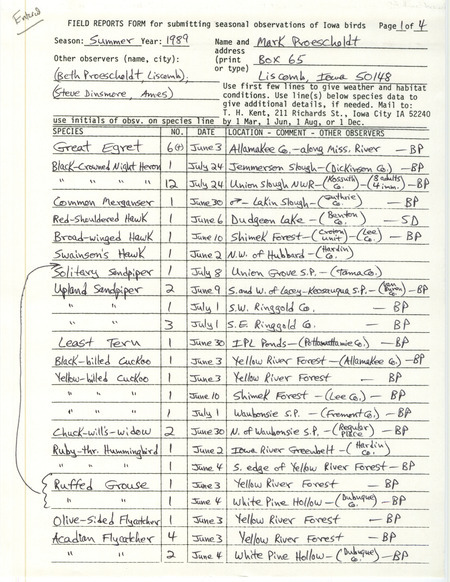 Entered
FIELD REPORTS FORM for submitting seasonal observations of Iowa birds Page 1 of 4
Season: Summer Year: 1989 Name and Mark Proescholdt
address
Other observers (name, city): (print Box 65
or type)
(Beth Proescholdt, Liscomb), Liscomb, Iowa 50148
(Steve Dinsmore, Ames) Use first few lines to give weather and habitat
conditions. Use line(s) below species data to
give additional details, if needed. Mail to:
T. H. Kent, 211 Richards St., Iowa City IA 52240
use initials of obsv. on species line by 1 Mar, 1 Jun, 1 Aug, or 1 Dec.
SPECIES NO. DATE LOCATION - COMMENT - OTHER OBSERVERS
Great Egret 6(+) June 3 Allamakee Co. - along Miss. River — BP
Black-Crowned Night Heron 1 July 24 Jemmerson Slough - (Dickinson Co.) — BP
" " " " 12 July 24 Union Slough NWR - (Kossuth Co.) - (8 adults, 4 imm.) - BP
Common Merganser 1 June 30 ♂ - Lakin Slough - (Guthrie Co.)
Red-Shouldered Hawk 1 June 6 Dudgeon Lake - (Benton Co.) — SD
Broad-winged Hawk 1 June 10 Shimek Forest - (Croton unit) - (Lee Co.) — BP
Swainson's Hawk 1 June 2 N.W. of Hubbard - (Hardin Co.)
Solitary Sandpiper 1 July 8 Union Grove S.P. - (Tama Co.)
Upland Sandpiper 2 June 9 S. and W. of Lacey-Keosauqua S.P. - (Van Buren Co.) - BP
" " 1 July 1 S.W. Ringgold Co. — BP
" " 3 July 1 S.E. Ringgold Co. — BP
Least Tern 1 June 30 IPL Ponds - (Pottawattamie Co.) — BP
Black-billed Cuckoo 1 June 3 Yellow River Forest - (Allamakee Co.) - BP
Yellow-billed Cuckoo 1 June 3 Yellow River Forest — BP
" " 1 June 10 Shimek Forest - (Lee Co.) — BP
" " 1 July 1 Waubonsie S.P. - (Fremont Co.) — BP
Chuck-will's-widow 2 June 30 N. of Waubonsie S.P. - (Regular Place) — BP
Ruby-thr. Hummingbird 1 June 2 Iowa River Greenbelt - (Hardin Co.)
" " 1 June 4 S. edge of Yellow River Forest - BP
Ruffed Grouse 1 June 3 Yellow River Forest — BP
" " 1 June 4 White Pine Hollow - (Dubuque Co.) — BP
Olive-sided Flycatcher 1 June 3 Yellow River Forest — BP
Acadian Flycatcher 4 June 3 Yellow River Forest — BP
" " 2 June 4 White Pine Hollow - (Dubuque Co.) — BP